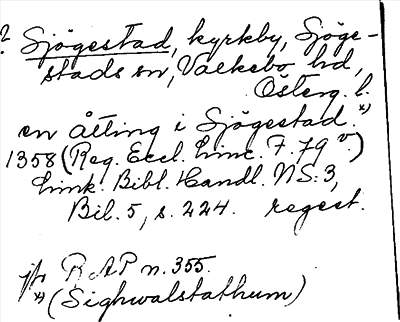 ? Sjögestad, kyrkby, Sjöge-
stads sn, Valkebo hd,
Österg. l.
en åtting i Sjögestad. *)
1358 (Reg. Eccl. Linc. F. 79 v.)
Link. Bibl. Handl. NS: 3,
Bil. 5, s. 224. regest.
jfr RAP n. 355.
*) (Sighwalstathum)